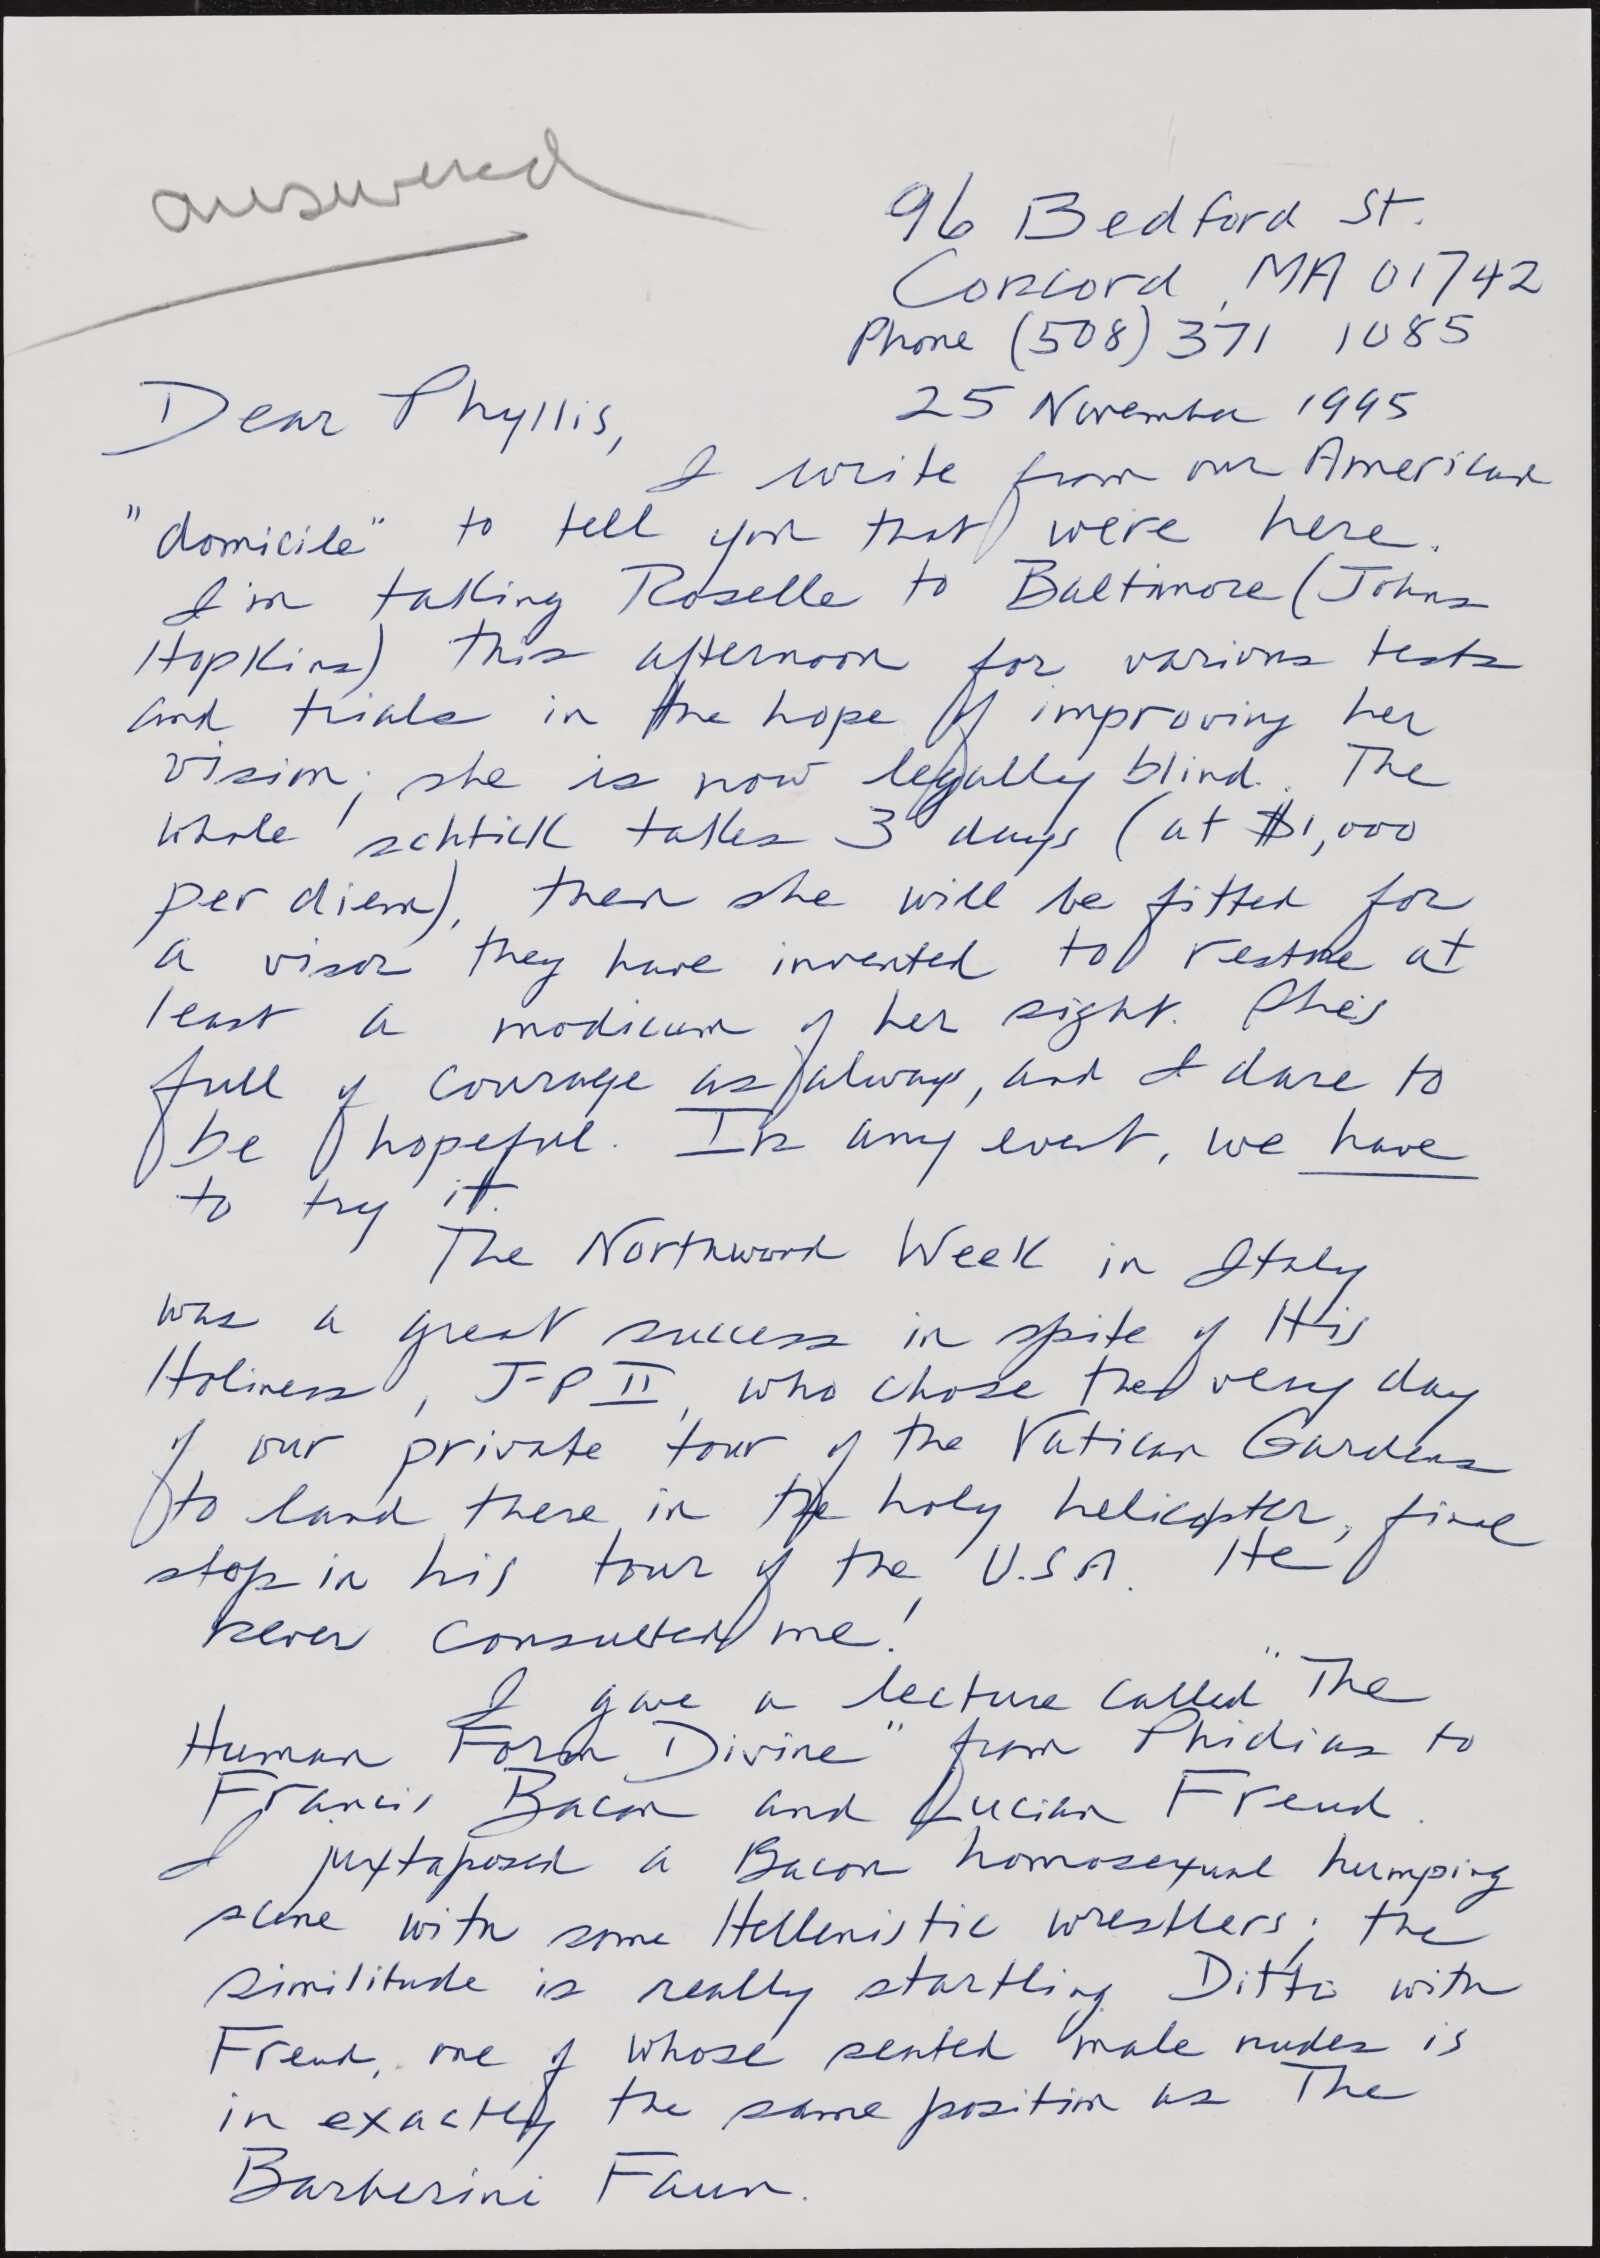 answered
96 Bedford St.
Concord, MA 01742
Phone (508) 371 1085
25 November 1995
Dear Phyllis,
I write from our American
"domicile" to tell you that we're here.
I'm taking Roselle to Baltimore (Johns
Hopkins) this afternoon for various tests
and trials in the hope of improving her
vision; she is now legally blind. The
whole schtick takes 3 days (at $1,000
per diem), then she will be fitted for
a visor they have invented to restore at
least a modicum of her sight. She's
full of courage as always, and I dare to
be hopeful. In any event, we have
to try it.
The Northward Week in Italy
was a great success in spite of His
Holiness, J-P II, who chose the very day
of our private tour of the Vatican Gardens
to land there in the holy helicopter, final
stop in his tour of the U.S.A. He
never consulted me!
I gave a lecture called "The
Human Form Divine" from Phidias to
Francis Bacon and Lucian Freud.
I juxtaposed a Bacon homosexual humping
scene with some Hellenistic wrestlers; the
similitude is really startling. Ditto with
Freud, one of whose seated male nudes is
in exactly the same position as The
Barberini Faun.